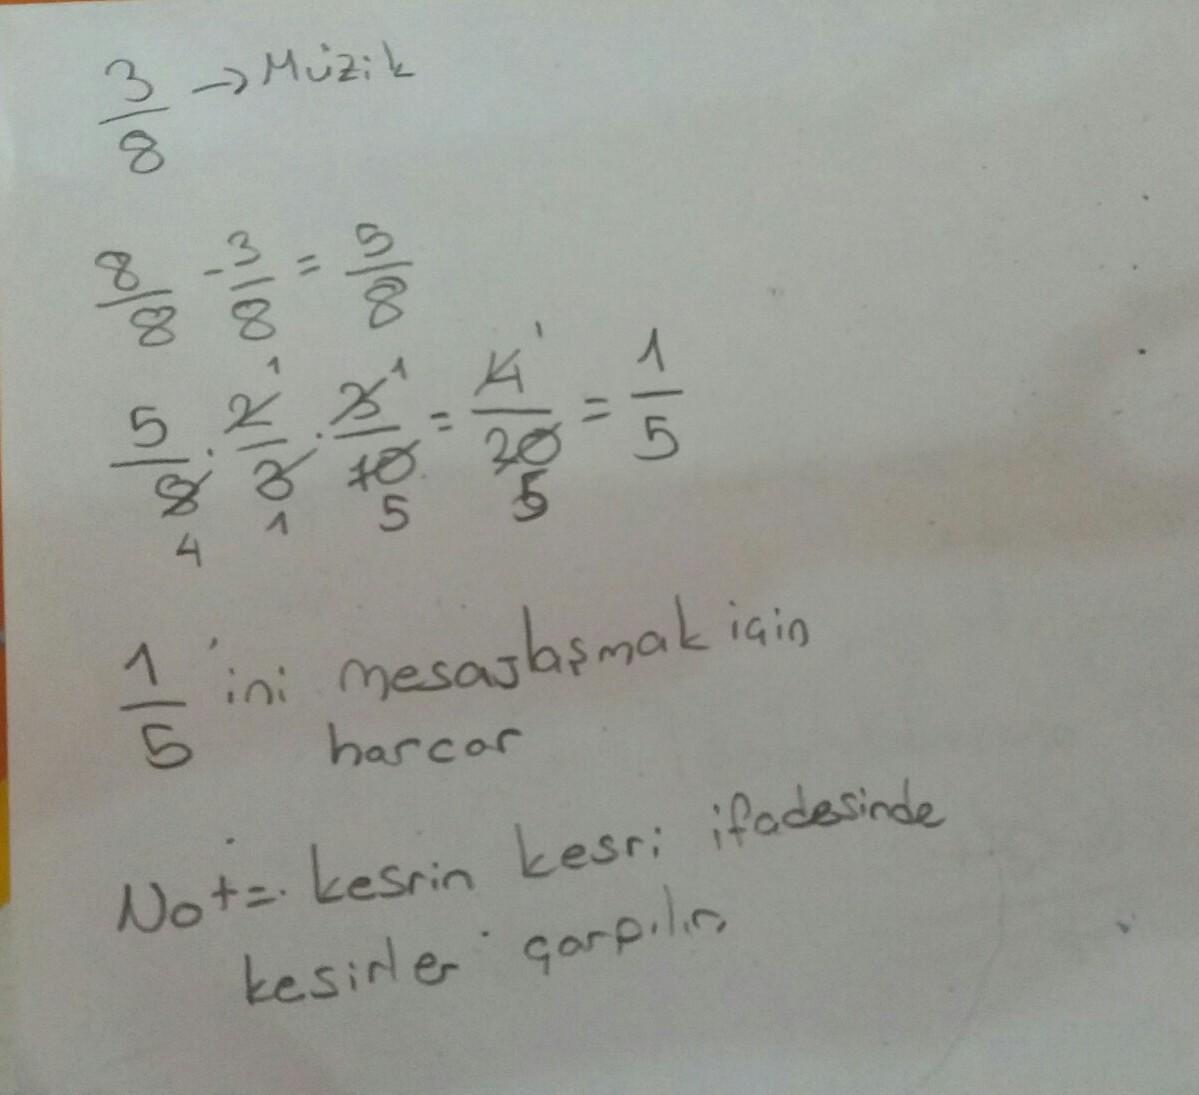 3/8 → Müzik
8/8 - 3/8 = 5/8
5/8 4 . 2/3 1 1 . 3/10 1 5 = 4/20 1 5 = 1/5
1/5 'ini mesajlaşmak için
harcar
Not=. kesrin kesri ifadesinde
kesirler çarpılır,